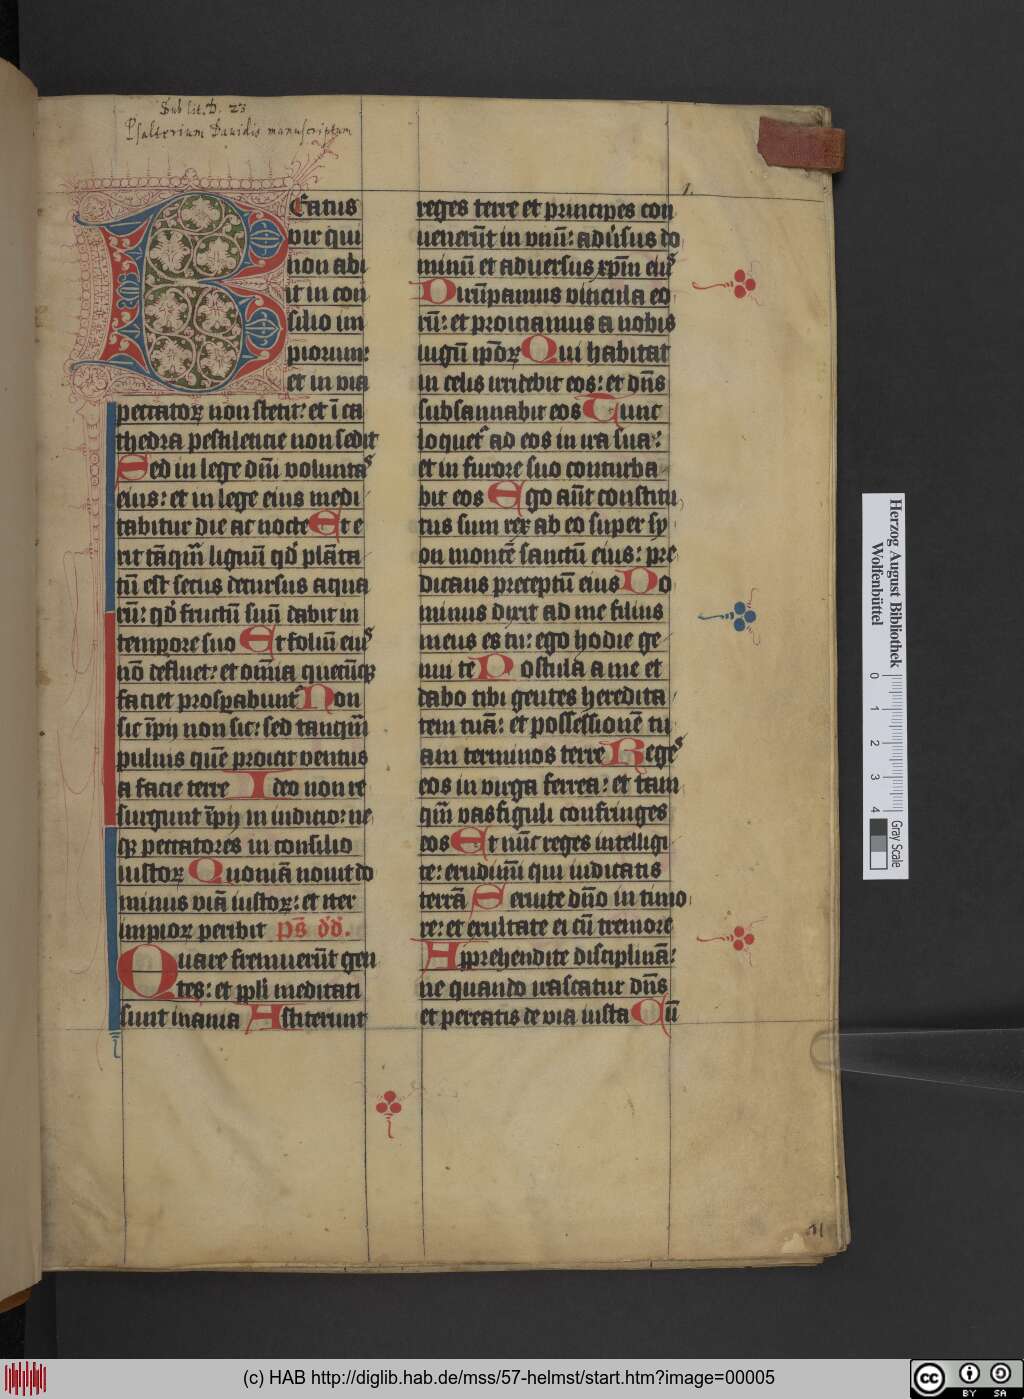 Sub lit. D. 23
Psalterium Dauidis manuscriptum
1.
BEatus
vir qui
non abi
it in con
silio im
piorum:
et in via
peccatoꝝ non stetit: et ī ca
thedra pestilencie non sedit
Sed in lege dn̄i volunta͛
eius: et in lege eius medi
tabitur die ac nocte Et e
rit tāqm̄ lignū qd̓ plāta
tū est secus decursus aqua
rū: qd̓ fructū suū dabit in
tempore suo Et foliū eiu͛
nō defluet: et om̄ia quecūqꝫ
faciet prosꝑabunt͛ Non
sic īpij non sic: sed tanqm̄
puluis quē proicit ventus
a facie terre Ideo non re
surgunt īpij in iudicio: ne
qꝫ peccatores in consilio
iustoꝝ Quoniā nouit do
minus viā iustoꝝ: et iter
impioꝝ peribit ps̄ dd̓.
Quare fremuerūt gen
tes: et ppl̓i meditati
sunt inania Astiterunt
reges terre et principes con
uenerūt in vnū: adu̓sus do
minū et aduersus xp̄m eiu͛
Dirūpamus vincula eo
rū: et proiciamus a nobis
iugū ip̄oꝝ Qui habitat
in celis irridebit eos: et dn̄s
subsannabit eos Tunc
loquet͛ ad eos in ira sua:
et in furore suo conturba
bit eos Ego aūt constitu
tus sum rex ab eo super sy
on montē sanctū eius: pre
dicans preceptū eius Do
minus dixit ad me filius
meus es tu: ego hodie ge
nui te Postula a me et
dabo tibi gentes heredita
tem tuā: et possessionē tu
am terminos terre Rege͛
eos in virga ferrea: et tam
qm̄ vas figuli confringes
eos Et nūc reges intelligi
te: erudimi̅ qui iudicatis
terrā Seruite dn̄o in timo
re: et exultate ei cū tremore
Apprehendite disciplinā:
ne quando irascatur dn̄s
et pereatis de via iusta Cū
Herzog August Bibliothek
Wolfenbüttel
0 1 2 3 4
Gray Scale
(c) HAB http://diglib.hab.de/mss/57-helmst/start.htm?image=00005
cc BY SA